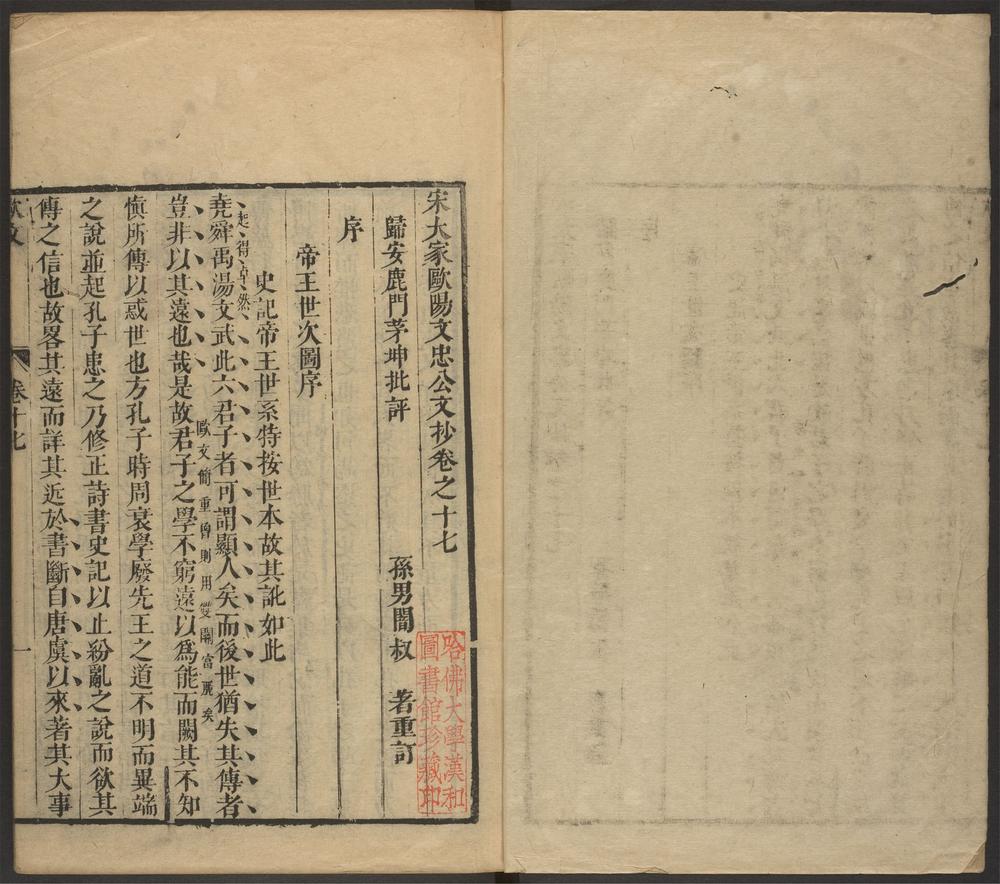 宋大家歐陽文忠公文抄卷之十七
歸安鹿門茅坤批評
孫男闇叔　著重訂
哈佛大學漢和
圖書館珍藏印
序
帝王世次圖序
史記帝王世系特按世本故其訛如此
起得卓然
堯舜禹湯文武此六君子者可謂顯人矣而後世猶失其傳者
豈非以其遠也哉是故君子之學不窮遠以爲能而闕其不知
歐文簡重曾則用雙關富麗矣
愼所傳以惑世也方孔子時周衰學廢先王之道不明而異端
之說並起孔子患之乃修正詩書史記以止紛亂之說而欲其
傳之信也故畧其遠而詳其近於書斷自唐虞以來著其大事
歐文
卷十七
一